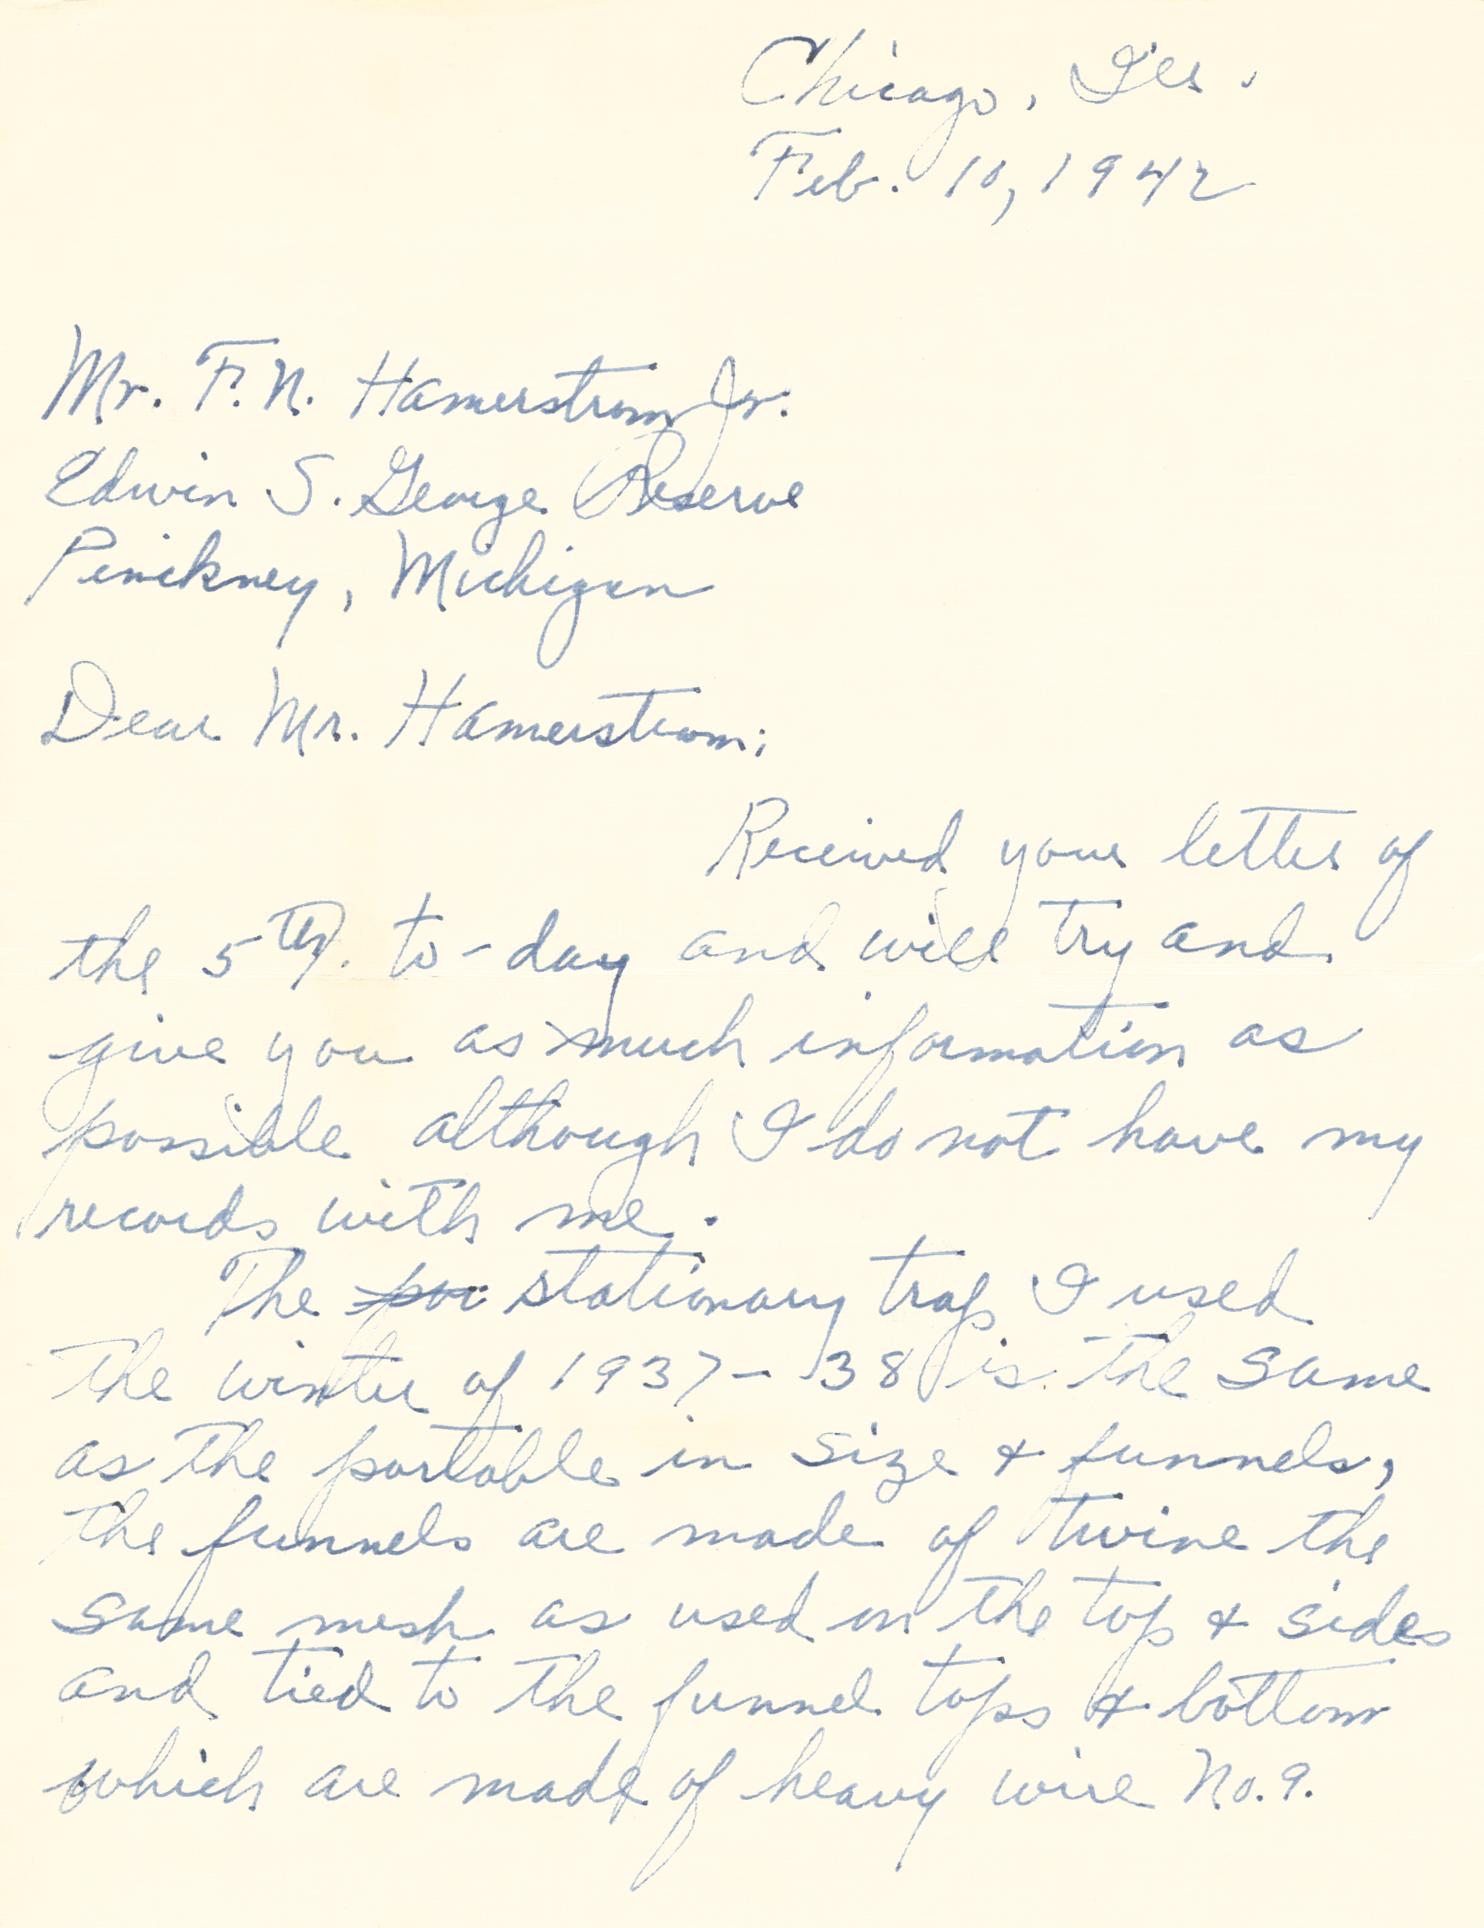 Chicago, Ills.
Feb. 10, 1942
Mr. F. N. Hamerstrom Jr.
Edwin S. George Reserve
Pinckney, Michigan
Dear Mr. Hamerstrom;
Received your letter of
the 5th. to-day and will try and
give you as much information as
possible although I do not have my
records with me.
The por stationary trap I used
the winter of 1937-38 is the same
as the portable in size & funnels,
the funnels are made of twine the
same mesh as used on the top & sides
and tied to the funnel tops & bottom
which are made of heavy wire No. 9.